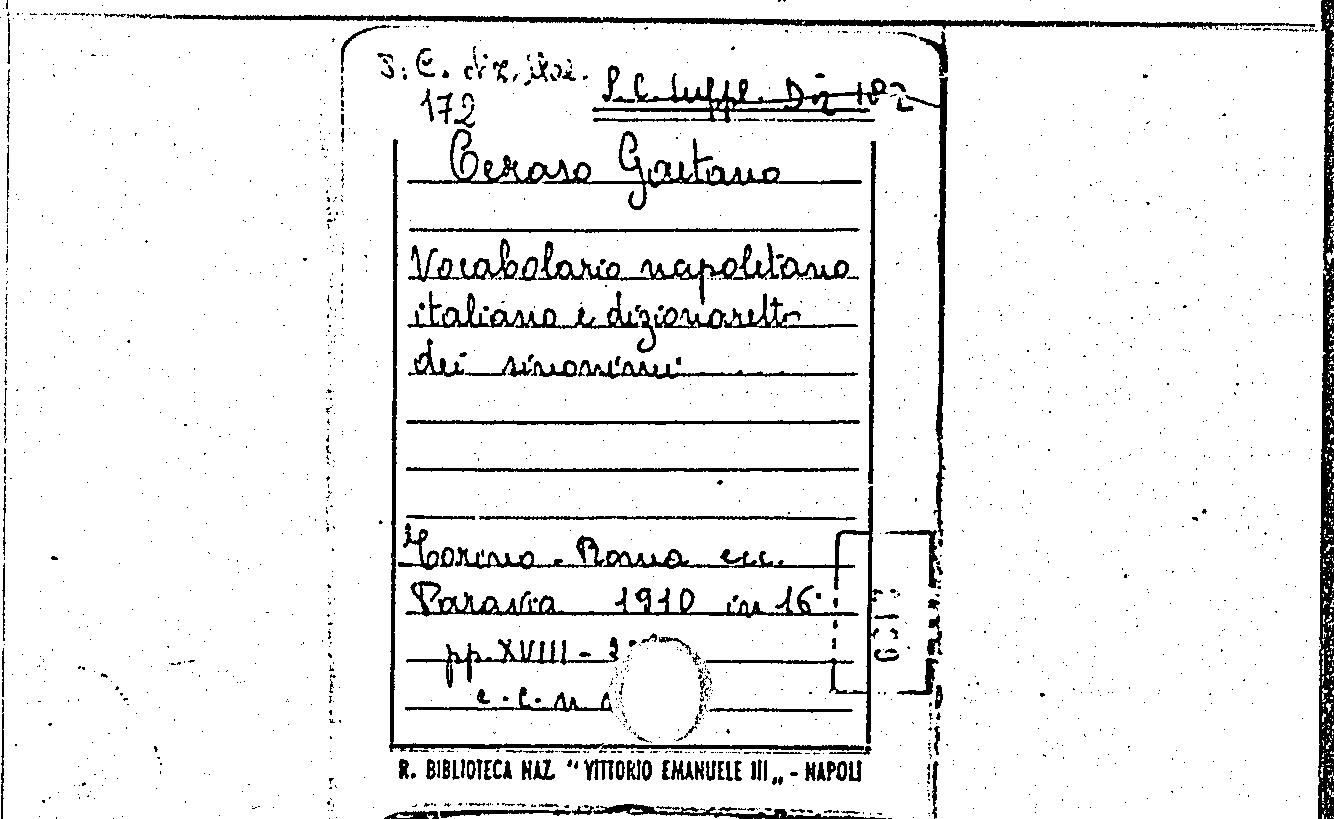 S. C. diz. ital.
172
S. C. Suppl. Diz 182
Ceraso Gaetano
Vocabolario napoletano
italiano e dizionaretto
dei sinonimi
Torino - Roma ecc.
Paravia 1910 in 16°
pp. XVIII -
R. BIBLIOTECA NAZ. "VITTORIO EMANUELE III„ - NAPOLI